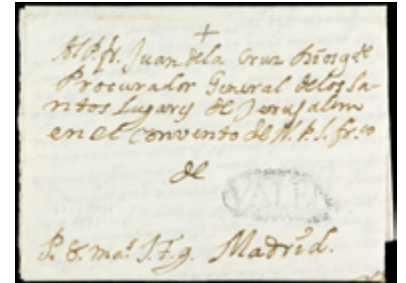 Al P. fr. Juan dela Cruz
Procurador General delos Sa-
ntos Lugares de Jerusalem
en el convento de N. P. S. fr.co
de
VALE
Madrid.